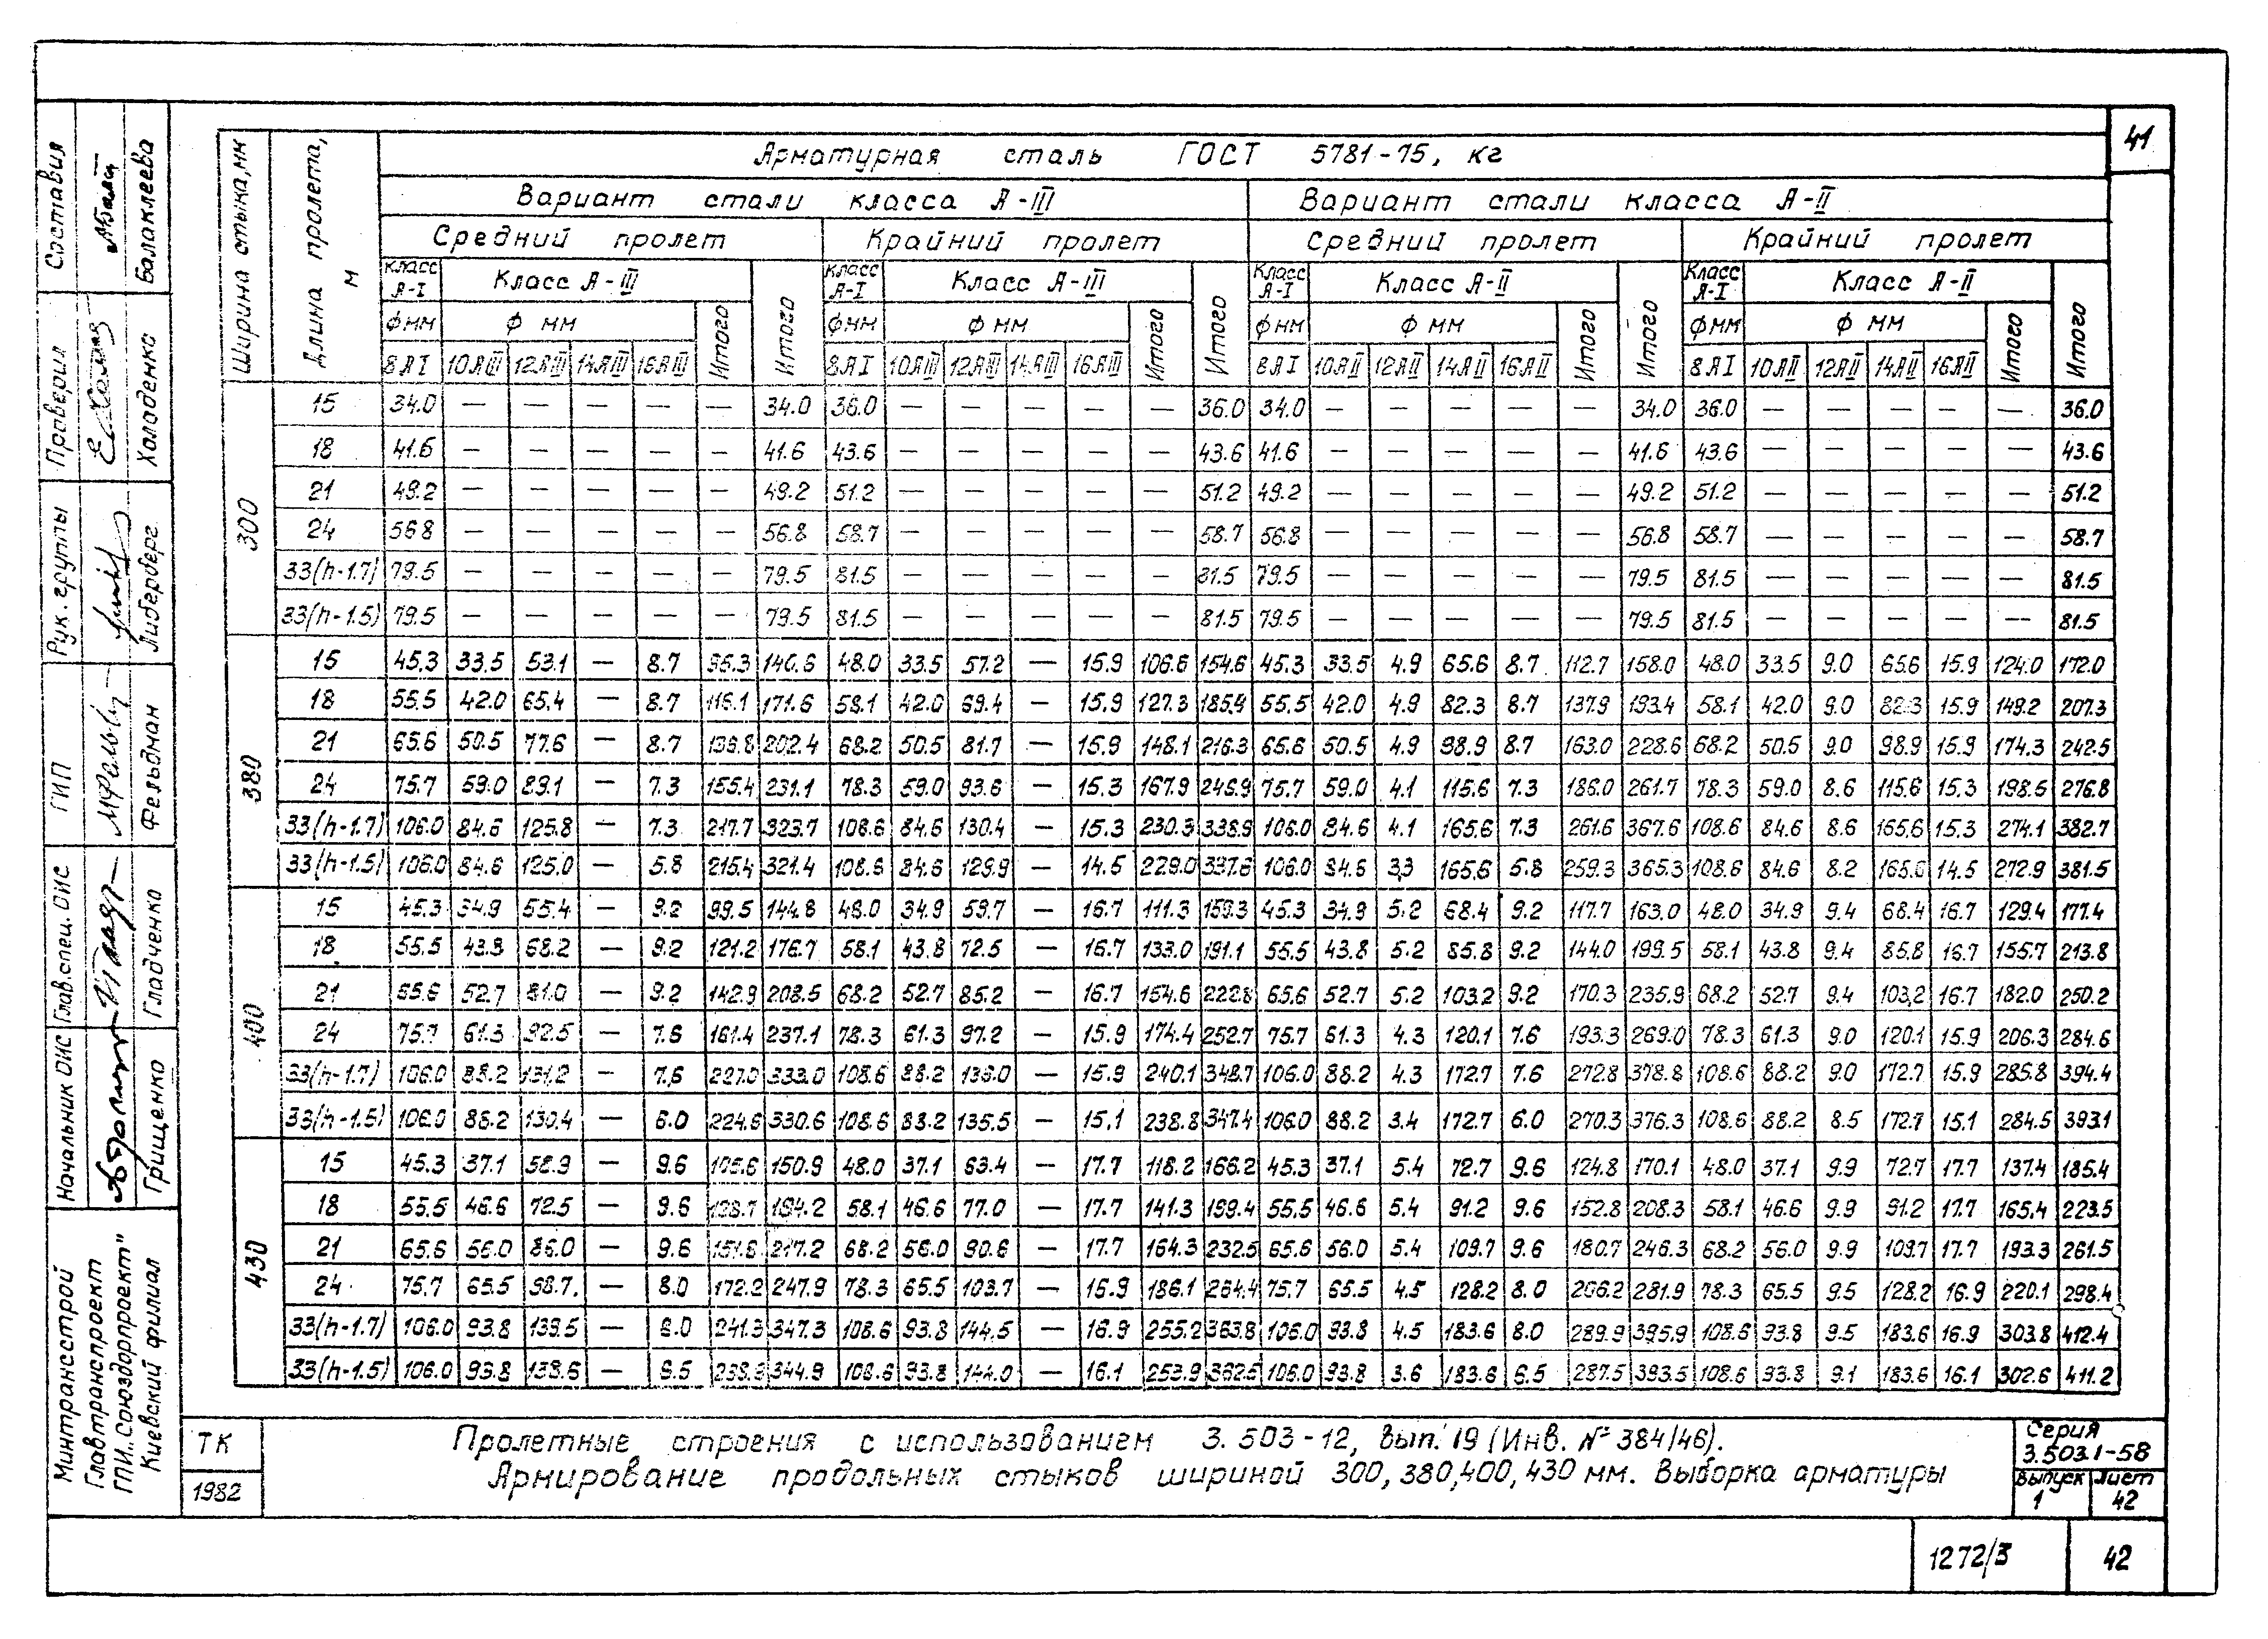 41
Арматурная сталь ГОСТ 5781-75, кг
Вариант стали класса А-III Вариант стали класса А-II
Средний пролет Крайний пролет Средний пролет Крайний пролет
Ширина стыка, мм Длина пролета, м Класс А-I Класс А-III Итого Класс А-I Класс А-III Итого Класс А-I Класс А-II Итого Класс А-I Класс А-II Итого
ф мм ф мм Итого ф мм ф мм Итого ф мм ф мм Итого ф мм ф мм Итого
8АI 10АIII 12АIII 14АIII 16АIII 8АI 10АIII 12АIII 14АIII 16АIII 8АI 10АII 12АII 14АII 16АII 8АI 10АII 12АII 14АII 16АII
300
15 34.0 — — — — — 34.0 36.0 — — — — — 36.0 34.0 — — — — — 34.0 36.0 — — — — — 36.0
18 41.6 — — — — — 41.6 43.6 — — — — — 43.6 41.6 — — — — — 41.6 43.6 — — — — — 43.6
21 49.2 — — — — — 49.2 51.2 — — — — — 51.2 49.2 — — — — — 49.2 51.2 — — — — — 51.2
24 56.8 — — — — — 56.8 58.7 — — — — — 58.7 56.8 — — — — — 56.8 58.7 — — — — — 58.7
33(h-1.7) 79.5 — — — — — 79.5 81.5 — — — — — 81.5 79.5 — — — — — 79.5 81.5 — — — — — 81.5
33(h-1.5) 79.5 — — — — — 79.5 81.5 — — — — — 81.5 79.5 — — — — — 79.5 81.5 — — — — — 81.5
380
15 45.3 33.5 53.1 — 8.7 95.3 140.6 48.0 33.5 57.2 — 15.9 106.6 154.6 45.3 33.5 4.9 65.6 8.7 112.7 158.0 48.0 33.5 9.0 65.6 15.9 124.0 172.0
18 55.5 42.0 65.4 — 8.7 116.1 171.6 58.1 42.0 69.4 — 15.9 127.3 185.4 55.5 42.0 4.9 82.3 8.7 137.9 193.4 58.1 42.0 9.0 82.3 15.9 149.2 207.3
21 65.6 50.5 77.6 — 8.7 136.8 202.4 68.2 50.5 81.7 — 15.9 148.1 216.3 65.6 50.5 4.9 98.9 8.7 163.0 228.6 68.2 50.5 9.0 98.9 15.9 174.3 242.5
24 75.7 59.0 89.1 — 7.3 155.4 231.1 78.3 59.0 93.6 — 15.3 167.9 246.9 75.7 59.0 4.1 115.6 7.3 186.0 261.7 78.3 59.0 8.6 115.6 15.3 198.5 276.8
33(h-1.7) 106.0 84.6 125.8 — 7.3 217.7 323.7 108.6 84.6 130.4 — 15.3 230.3 338.9 106.0 84.6 4.1 165.6 7.3 261.6 367.6 108.6 84.6 8.6 165.6 15.3 274.1 382.7
33(h-1.5) 106.0 84.6 125.0 — 5.8 215.4 321.4 108.6 84.6 129.9 — 14.5 229.0 337.6 106.0 84.6 3.3 165.6 5.8 259.3 365.3 108.6 84.6 8.2 165.6 14.5 272.9 381.5
400
15 45.3 34.9 55.4 — 9.2 99.5 144.8 48.0 34.9 59.7 — 16.7 111.3 159.3 45.3 34.9 5.2 68.4 9.2 117.7 163.0 48.0 34.9 9.4 68.4 16.7 129.4 177.4
18 55.5 43.8 68.2 — 9.2 121.2 176.7 58.1 43.8 72.5 — 16.7 133.0 191.1 55.5 43.8 5.2 85.8 9.2 144.0 199.5 58.1 43.8 9.4 85.8 16.7 155.7 213.8
21 65.6 52.7 81.0 — 9.2 142.9 208.5 68.2 52.7 85.2 — 16.7 154.6 222.8 65.6 52.7 5.2 103.2 9.2 170.3 235.9 68.2 52.7 9.4 103,2 16.7 182.0 250.2
24 75.7 61.3 92.5 — 7.6 161.4 237.1 78.3 61.3 97.2 — 15.9 174.4 252.7 75.7 61.3 4.3 120.1 7.6 193.3 269.0 78.3 61.3 9.0 120.1 15.9 206.3 284.6
33(h-1.7) 106.0 88.2 131.2 — 7.6 227.0 333.0 108.6 88.2 136.0 — 15.9 240.1 348.7 106.0 88.2 4.3 172.7 7.6 272.8 378.8 108.6 88.2 9.0 172.7 15.9 285.8 394.4
33(h-1.5) 106.0 88.2 130.4 — 6.0 224.6 330.6 108.6 88.2 135.5 — 15.1 238.8 347.4 106.0 88.2 3.4 172.7 6.0 270.3 376.3 108.6 88.2 8.5 172.7 15.1 284.5 393.1
430
15 45.3 37.1 58.9 — 9.6 105.6 150.9 48.0 37.1 63.4 — 17.7 118.2 166.2 45.3 37.1 5.4 72.7 9.6 124.8 170.1 48.0 37.1 9.9 72.7 17.7 137.4 185.4
18 55.5 46.6 72.5 — 9.6 128.7 184.2 58.1 46.6 77.0 — 17.7 141.3 199.4 55.5 46.6 5.4 91.2 9.6 152.8 208.3 58.1 46.6 9.9 91.2 17.7 165.4 223.5
21 65.6 56.0 86.0 — 9.6 151.6 217.2 68.2 56.0 90.6 — 17.7 164.3 232.5 65.6 56.0 5.4 109.7 9.6 180.7 246.3 68.2 56.0 9.9 109.7 17.7 193.3 261.5
24 75.7 65.5 98.7 — 8.0 172.2 247.9 78.3 65.5 103.7 — 16.9 186.1 264.4 75.7 65.5 4.5 128.2 8.0 206.2 281.9 78.3 65.5 9.5 128.2 16.9 220.1 298.4
33(h-1.7) 106.0 93.8 139.5 — 8.0 241.3 347.3 108.6 93.8 144.5 — 16.9 255.2 363.8 106.0 93.8 4.5 183.6 8.0 289.9 395.9 108.6 93.8 9.5 183.6 16.9 303.8 412.4
33(h-1.5) 106.0 93.8 138.6 — 6.5 238.9 344.9 108.6 93.8 144.0 — 16.1 253.9 362.5 106.0 93.8 3.6 183.6 6.5 287.5 393.5 108.6 93.8 9.1 183.6 16.1 302.6 411.2
Составил Балаклеева
Проверил Холоденко
Рук. группы Либерберг
ГИП Фельдман
Глав.спец. ОИС Гладченко
Начальник ОИС Грищенко
Минтрансстрой
Главтранспроект
ГПИ „Союздорпроект"
Киевский филиал
ТК
1982
Пролетные строения с использованием 3.503-12, вып. 19 (Инв. № 384/46).
Армирование продольных стыков шириной 300, 380, 400, 430 мм. Выборка арматуры
Серия
3.503.1-58
Выпуск Лист
1 42
1272/3 42